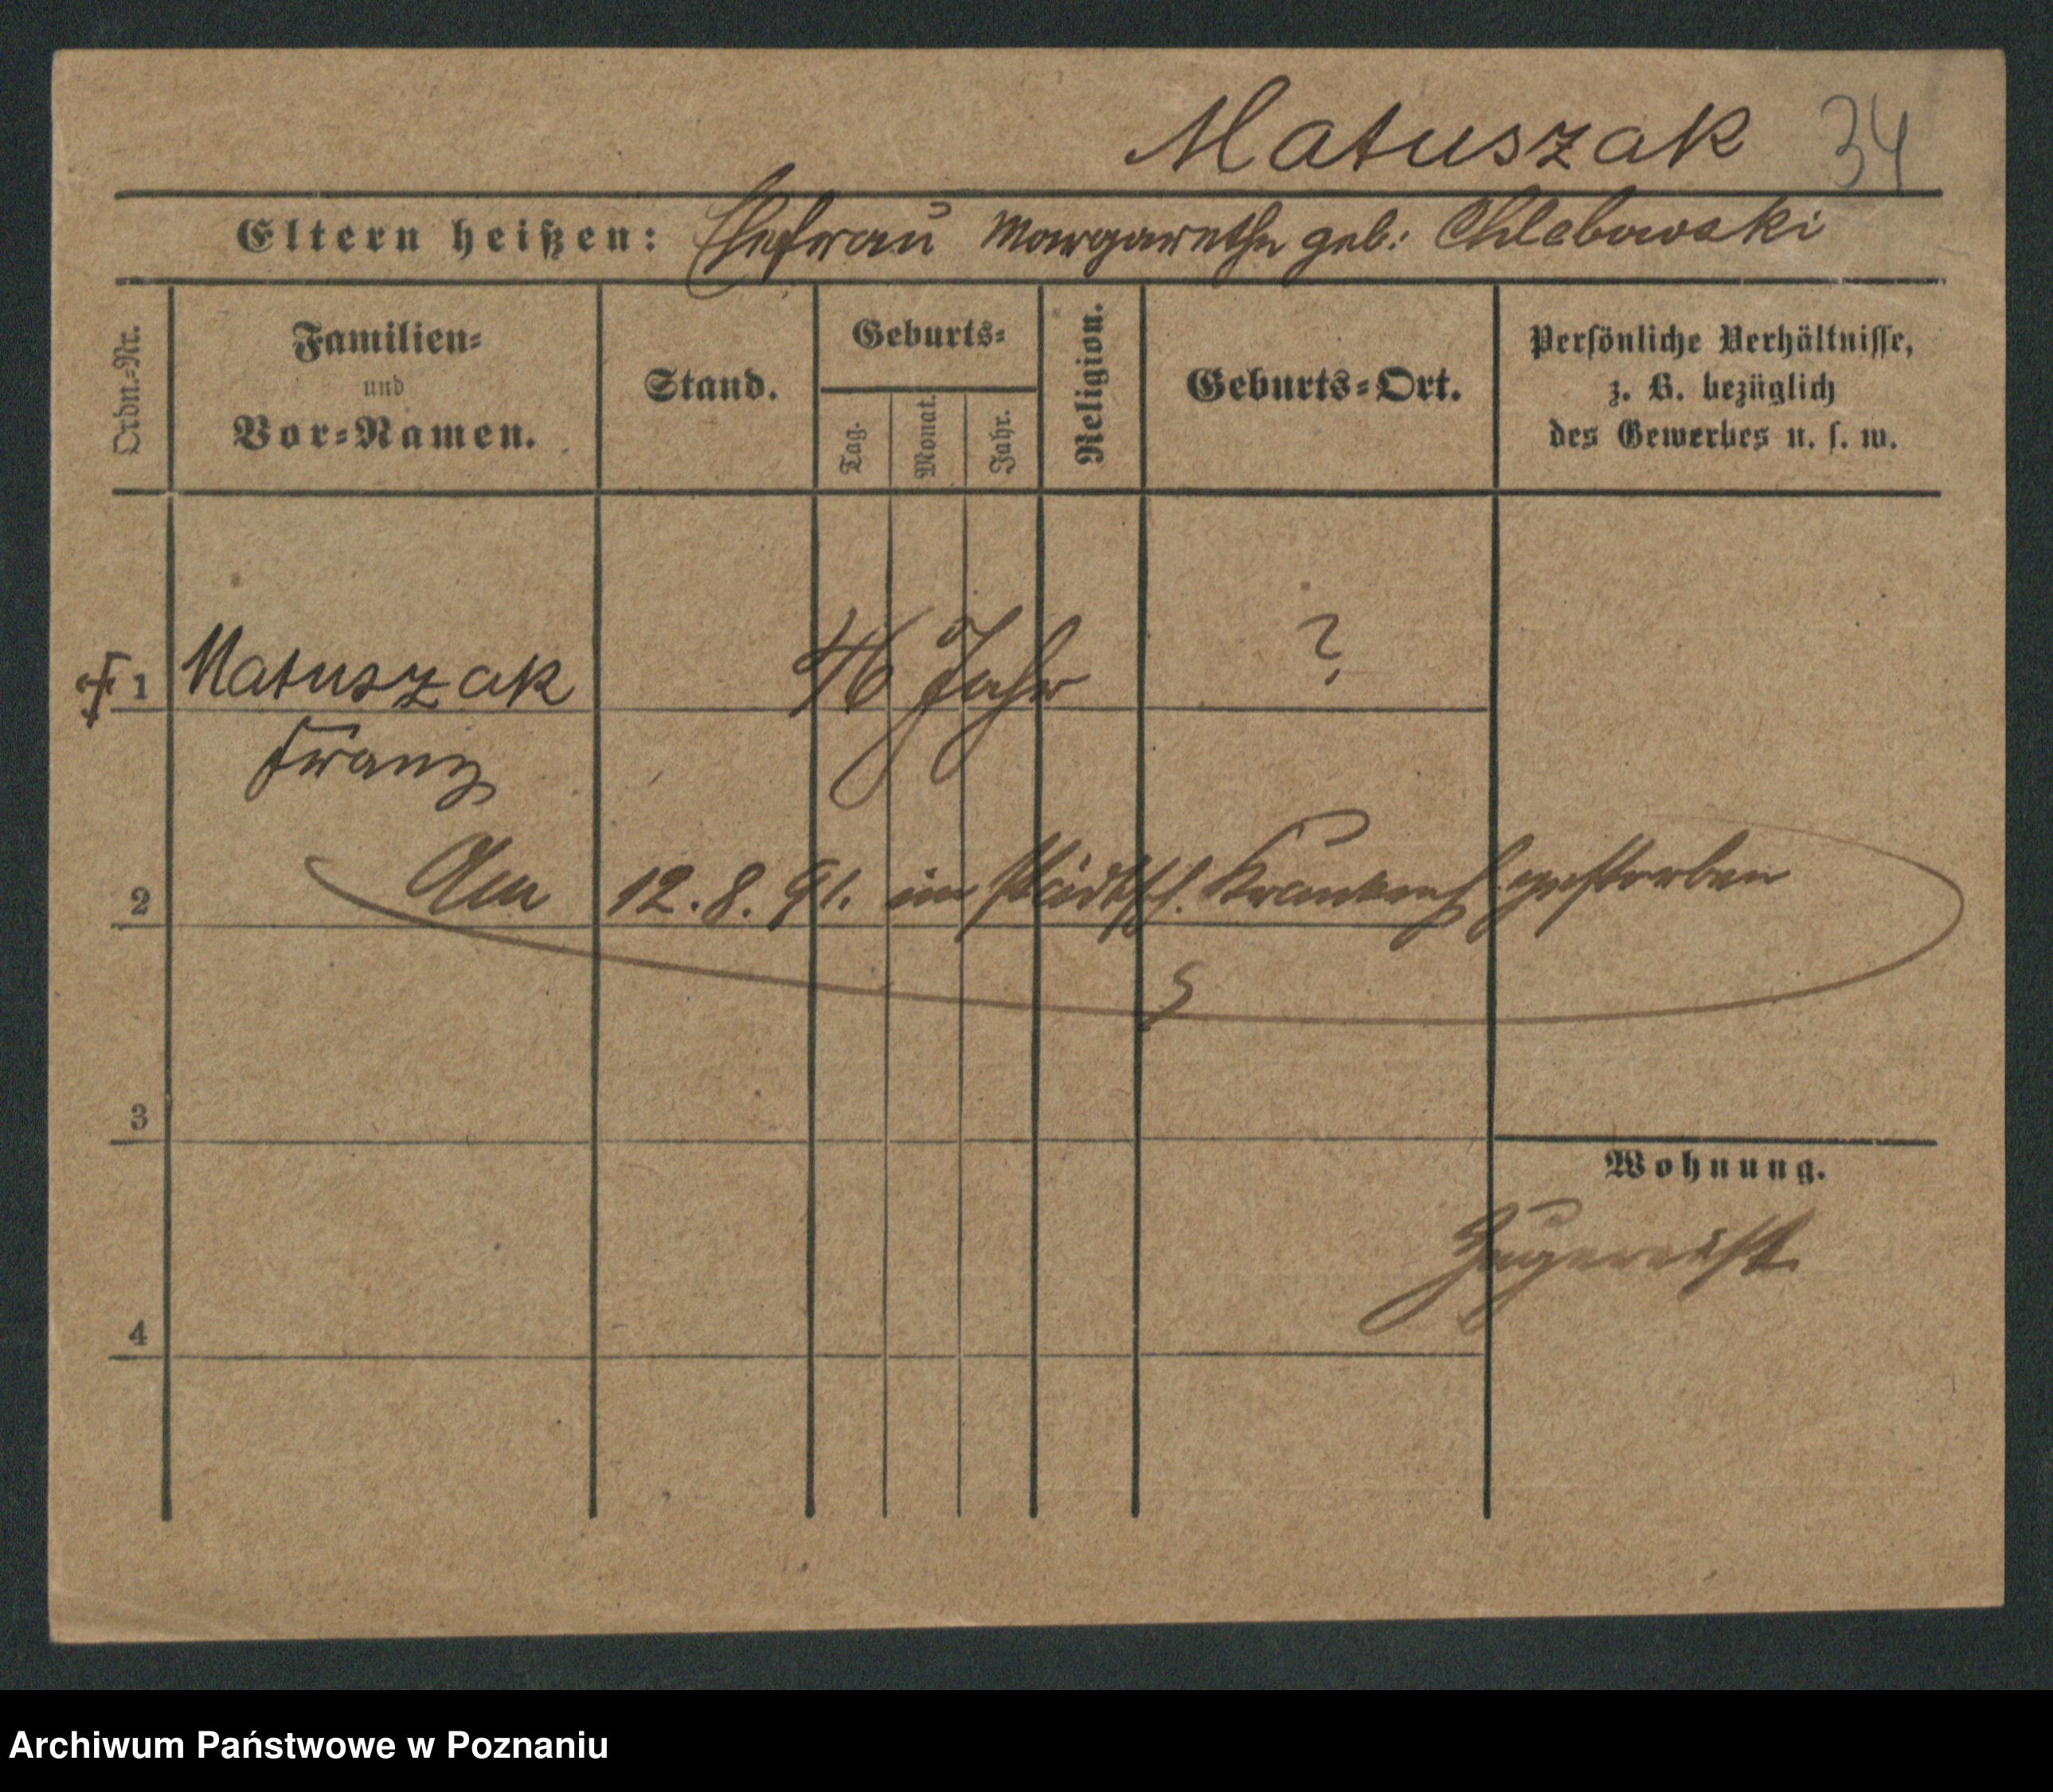 Matuszak 34
Eltern heißen: Ehefrau Margarethe geb: Chlebowski
Ordn.-Nr.
Familien-
und
Vor-Namen.
Stand.
Geburts-
Tag.
Monat.
Jahr.
Religion.
Geburts-Ort.
Persönliche Verhältnisse,
z. B. bezüglich
des Gewerbes u. s. w.
† 1 Matuszak 46 Jahr ?
Franz
2 Am 12.8.91. im städtsch. Krankenh. gestorben
3
Wohnung.
4
Archiwum Państwowe w Poznaniu